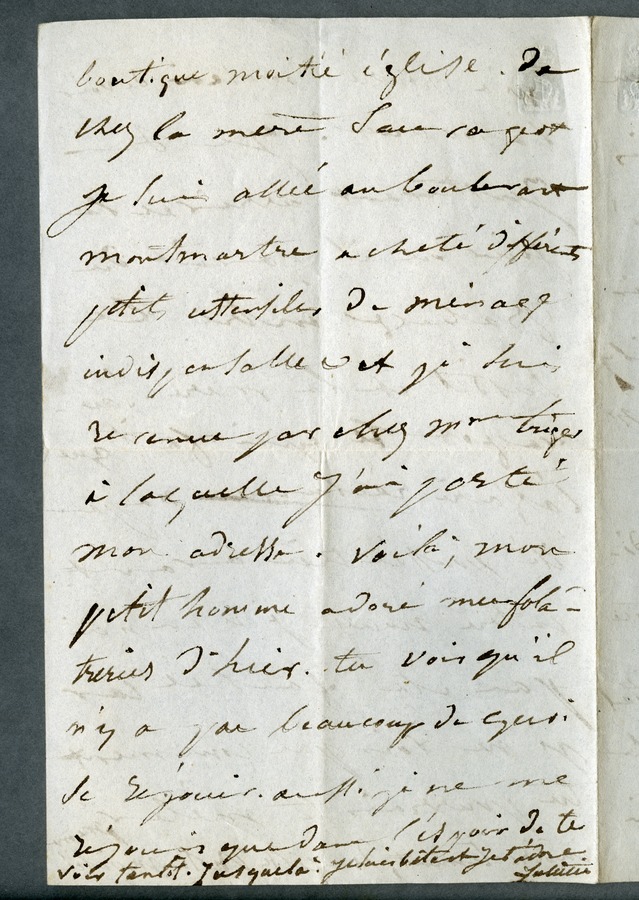 boutique moitié église. De
chez la mère Sauvageot
je suis allée au boulevart
montmartre acheté différents
petits ustensiles de ménage
indispensables et je suis
revenue par chez Mme Triger
à laquelle j'ai porté
mon adresse. Voilà, mon
petit homme adoré mes folâ-
treries d'hier. tu vois qu'il
n'y a pas beaucoup de quoi
se réjouir. aussi je ne me
réjouis que dans l'espoir de te
voir tantôt. Jusque là je baise et je t'adore
Juliette